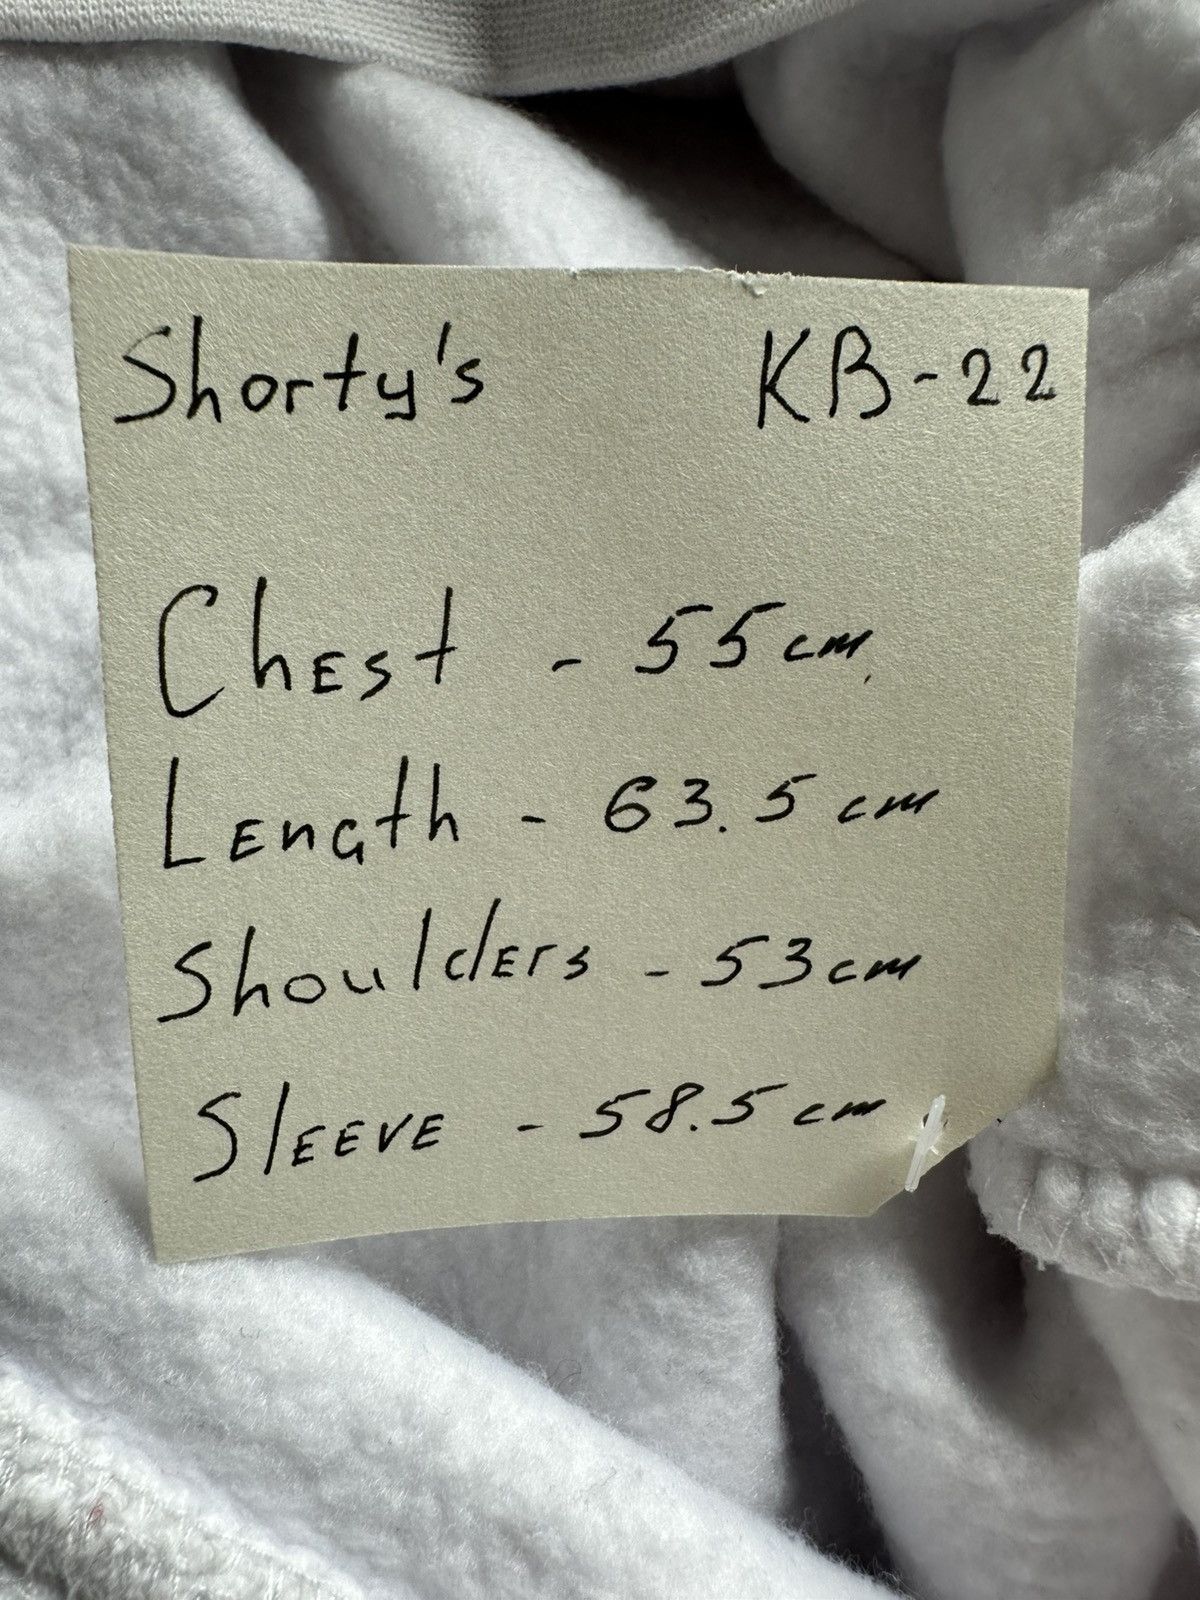 Shorty's KB-22
Chest - 55cm.
Length - 63.5 cm
Shoulders - 53cm
Sleeve - 58.5 cm